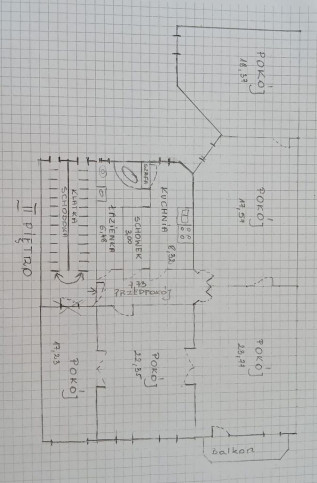 POKÓJ
18,37
POKÓJ
17,57
POKÓJ
KUCHNIA
8,32
SCHOWEK
3,00
ŁAZIENKA
6,48
KLATKA
SCHODOWA
7,73
PRZEDPOKÓJ
POKÓJ
22,35
POKÓJ
17,23
II PIĘTRO
balkon